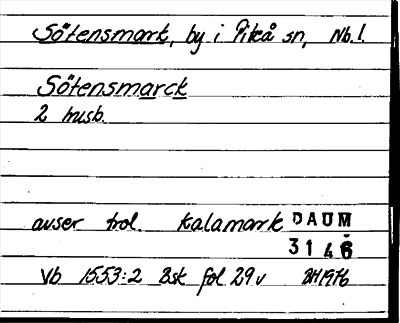 Sötensmark, by i Piteå sn, Nb.l.
Sötensmarck
2 husb.
avser trol. Kalamark DAUM
3146
Vb 1553:2 Bsk fol 29v BH1976